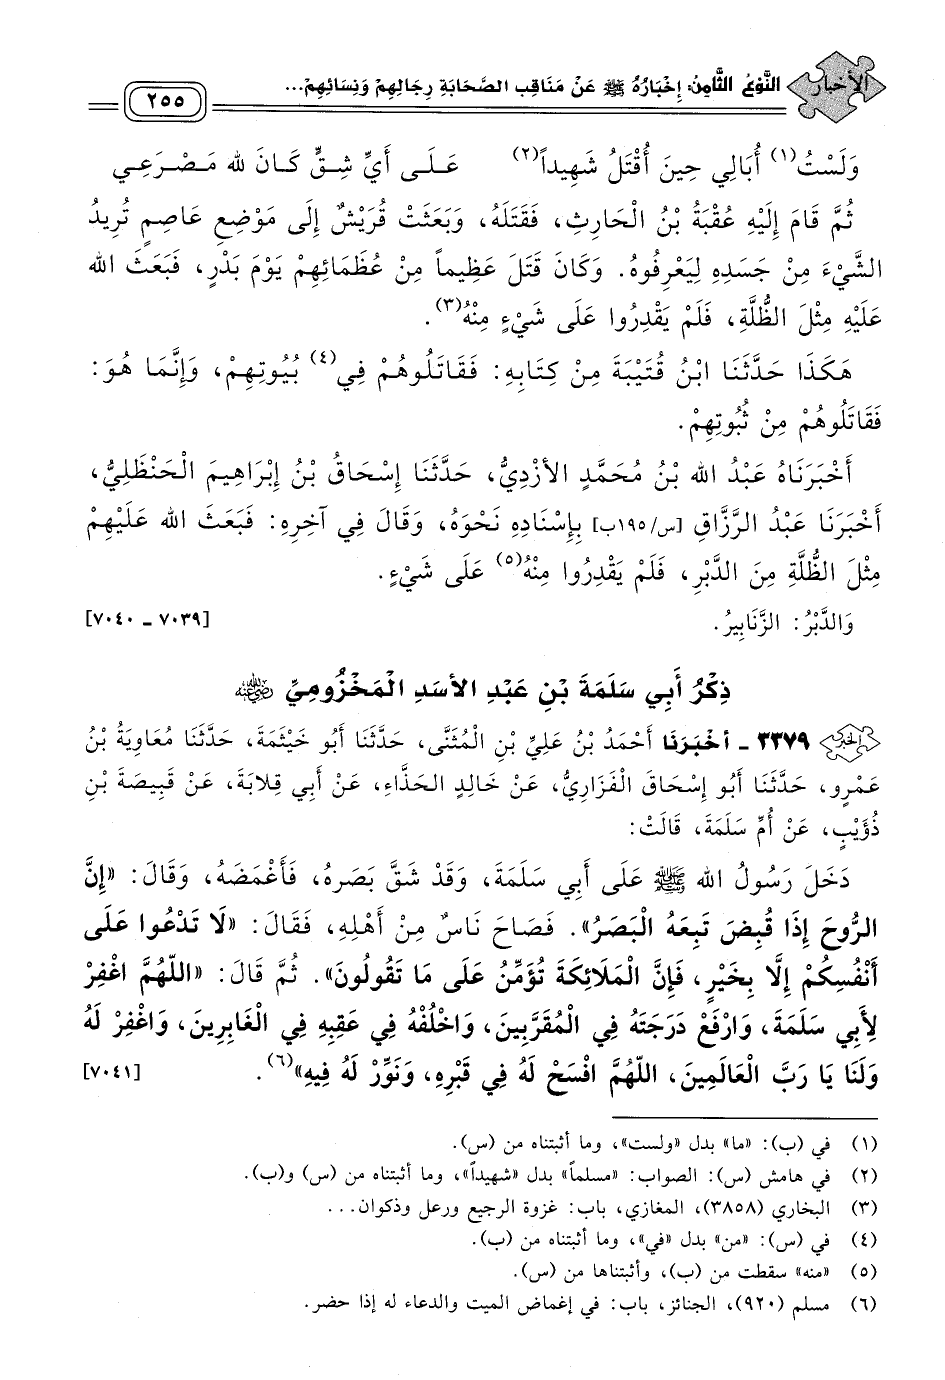 الأخبار النَّوْعُ الثَّامِنُ: إِخْبَارُهُ ﷺ عَنْ مَنَاقِبِ الصَّحَابَةِ رِجَالِهِمْ وَنِسَائِهِمْ... ٢٥٥
وَلَسْتُ(١) أُبَالِي حِينَ أُقْتَلُ شَهِيداً(٢) عَلَى أَيِّ شِقٍّ كَانَ لله مَصْرَعِي
ثُمَّ قَامَ إِلَيْهِ عُقْبَةُ بْنُ الْحَارِثِ، فَقَتَلَهُ، وَبَعَثَتْ قُرَيْشٌ إِلَى مَوْضِعِ عَاصِمٍ تُرِيدُ
الشَّيْءَ مِنْ جَسَدِهِ لِيَعْرِفُوهُ. وَكَانَ قَتَلَ عَظِيماً مِنْ عُظَمَائِهِمْ يَوْمَ بَدْرٍ، فَبَعَثَ الله
عَلَيْهِ مِثْلَ الظُّلَّةِ، فَلَمْ يَقْدِرُوا عَلَى شَيْءٍ مِنْهُ(٣).
هَكَذَا حَدَّثَنَا ابْنُ قُتَيْبَةَ مِنْ كِتَابِهِ: فَقَاتَلُوهُمْ فِي(٤) بُيُوتِهِمْ، وَإِنَّمَا هُوَ:
فَقَاتَلُوهُمْ مِنْ ثُبُوتِهِمْ.
أَخْبَرَنَاهُ عَبْدُ الله بْنُ مُحَمَّدٍ الأَزْدِيُّ، حَدَّثَنَا إِسْحَاقُ بْنُ إِبْرَاهِيمَ الْحَنْظَلِيُّ،
أَخْبَرَنَا عَبْدُ الرَّزَّاقِ [س/١٩٥ب] بِإِسْنَادِهِ نَحْوَهُ، وَقَالَ فِي آخِرِهِ: فَبَعَثَ الله عَلَيْهِمْ
مِثْلَ الظُّلَّةِ مِنَ الدَّبْرِ، فَلَمْ يَقْدِرُوا مِنْهُ(٥) عَلَى شَيْءٍ.
وَالدَّبْرُ: الزَّنَابِيرُ. [٧٠٣٩ ـ ٧٠٤٠]
ذِكْرُ أَبِي سَلَمَةَ بْنِ عَبْدِ الأَسَدِ الْمَخْزُومِيِّ رضي الله عنه
الخبر ٣٣٧٩ ـ أخْبَرَنَا أَحْمَدُ بْنُ عَلِيِّ بْنِ الْمُثَنَّى، حَدَّثَنَا أَبُو خَيْثَمَةَ، حَدَّثَنَا مُعَاوِيَةُ بْنُ
عَمْرٍو، حَدَّثَنَا أَبُو إِسْحَاقَ الْفَزَارِيُّ، عَنْ خَالِدٍ الحَذَّاءِ، عَنْ أَبِي قِلَابَةَ، عَنْ قَبِيصَةَ بْنِ
ذُؤَيْبٍ، عَنْ أُمِّ سَلَمَةَ، قَالَتْ:
دَخَلَ رَسُولُ الله ﷺ عَلَى أَبِي سَلَمَةَ، وَقَدْ شَقَّ بَصَرُهُ، فَأَغْمَضَهُ، وَقَالَ: «إِنَّ
الرُّوحَ إِذَا قُبِضَ تَبِعَهُ الْبَصَرُ». فَصَاحَ نَاسٌ مِنْ أَهْلِهِ، فَقَالَ: «لَا تَدْعُوا عَلَى
أَنْفُسِكُمْ إِلَّا بِخَيْرٍ، فَإِنَّ الْمَلَائِكَةَ تُؤَمِّنُ عَلَى مَا تَقُولُونَ». ثُمَّ قَالَ: «اللّهُمَّ اغْفِرْ
لِأَبِي سَلَمَةَ، وَارْفَعْ دَرَجَتَهُ فِي الْمُقَرَّبِينَ، وَاخْلُفْهُ فِي عَقِبِهِ فِي الْغَابِرِينَ، وَاغْفِرْ لَهُ
وَلَنَا يَا رَبَّ الْعَالَمِينَ، اللّهُمَّ افْسَحْ لَهُ فِي قَبْرِهِ، وَنَوِّرْ لَهُ فِيهِ»(٦). [٧٠٤١]
(١) في (ب): «ما» بدل «ولست»، وما أثبتناه من (س).
(٢) في هامش (س): الصواب: «مسلماً» بدل «شهيداً»، وما أثبتناه من (س) و(ب).
(٣) البخاري (٣٨٥٨)، المغازي، باب: غزوة الرجيع ورعل وذكوان...
(٤) في (س): «من» بدل «في»، وما أثبتناه من (ب).
(٥) «منه» سقطت من (ب)، وأثبتناها من (س).
(٦) مسلم (٩٢٠)، الجنائز، باب: في إغماض الميت والدعاء له إذا حضر.